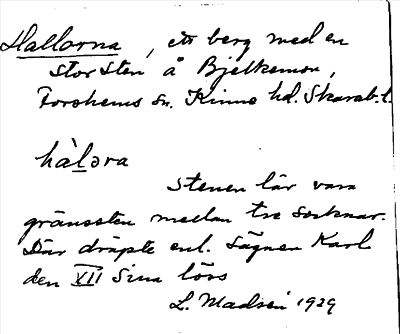 Hallorna, ett berg med en
stor sten å Bjelkemon,
Forshems sn. Kinne hd. Skarab. l.
hàləra
Stenen lär vara
gränssten medlan tre socknar.
Där dräpte enl. Sägnen Karl
den VII Sina lörs
L. Madsén 1929